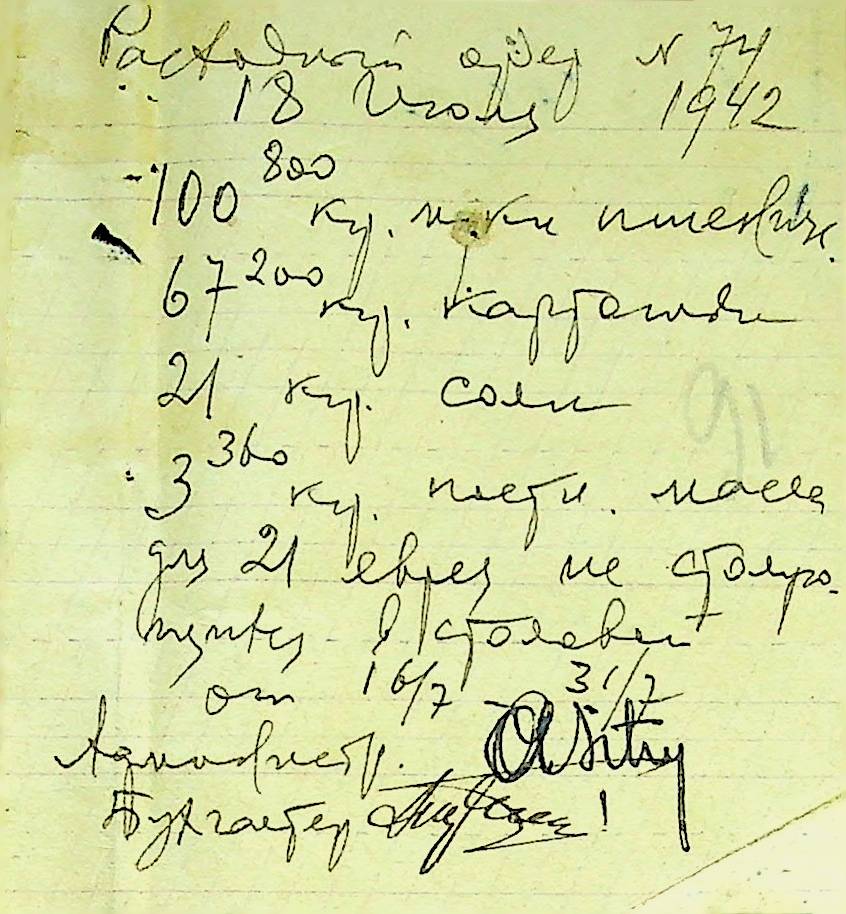 Расходный ордер N 74
18 Июля 1942
100 800 кг. муки пшеничн.
67 200 кг. картошки
21 кг. соли
3 360 кг. постн. масла
для 21 еврея не столую-
щихся в столовой
от 16/7 31/7
Администр.
Бухгалтер !
91